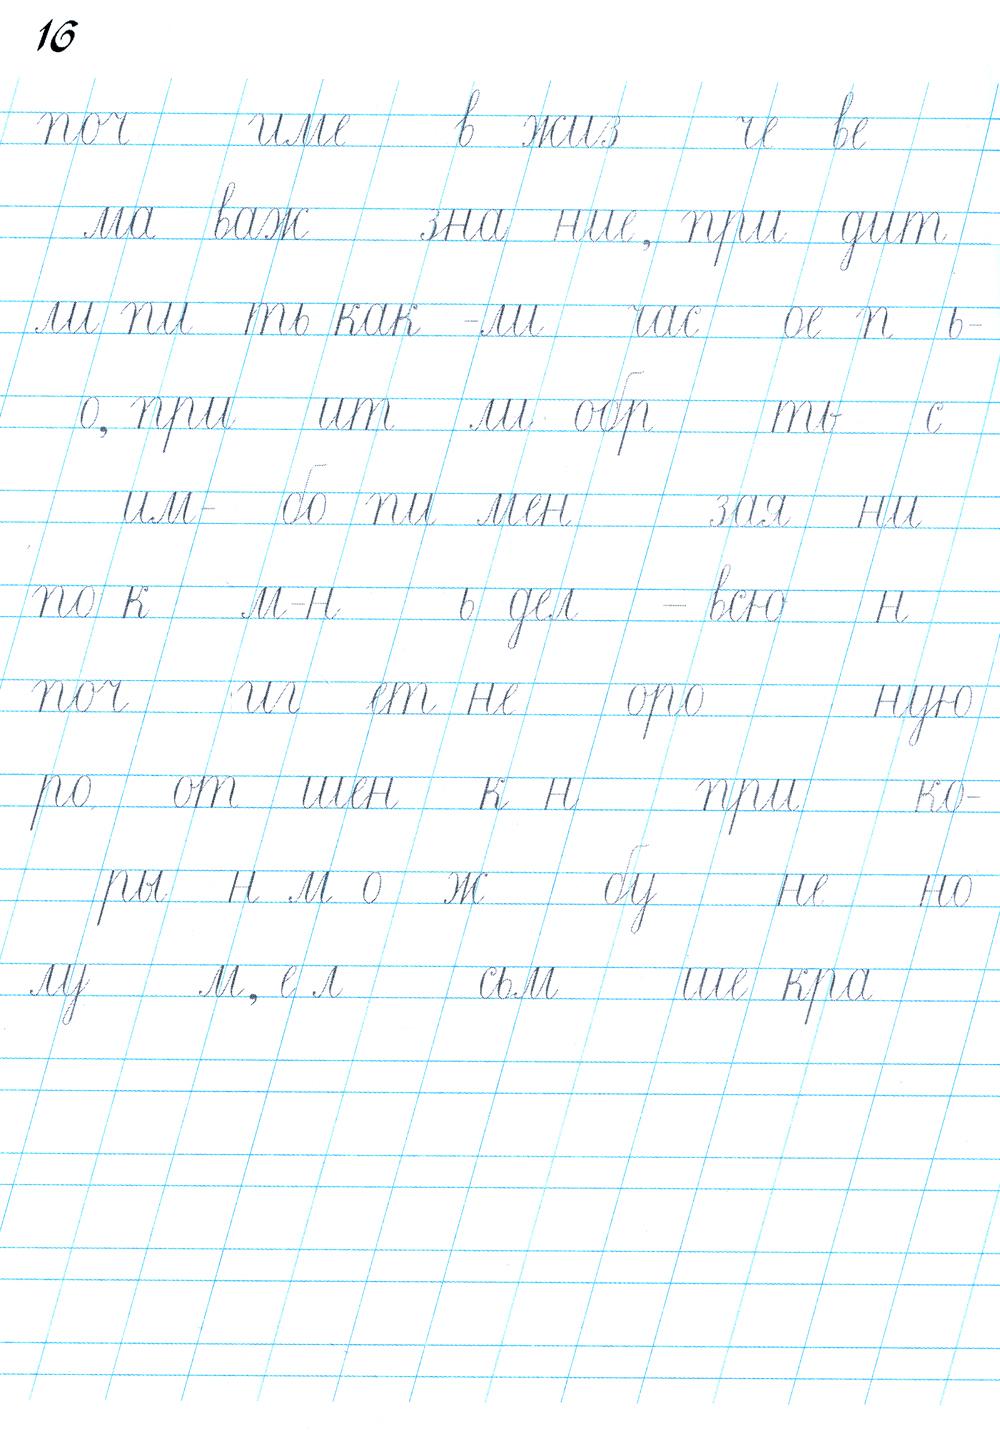 16
поч име в жиз че ве
ма важ зна ние, при дит
ли пи ть как -ли час ое п ь-
о, при ит ли обр ть с
им- бо пи мен зая ни
по к м-н ь дел - всю н
поч иг ет не оро ную
ро от шен к н при ко-
ры н м о ж бу не но
лу м, е л сьм ше кра